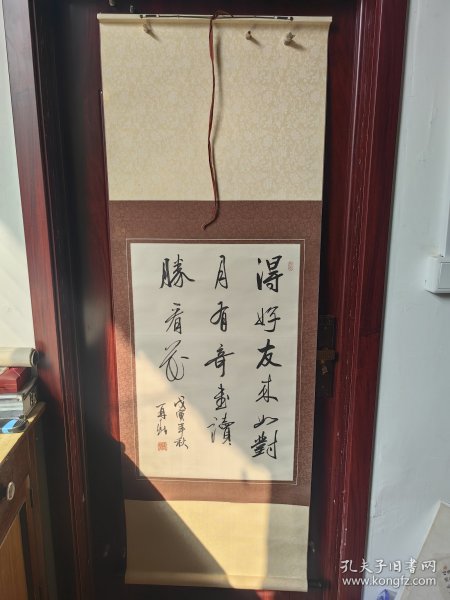 得好友来如對
月有奇書讀
勝看花
戊寅年秋
孔夫子旧书网
www.kongfz.com